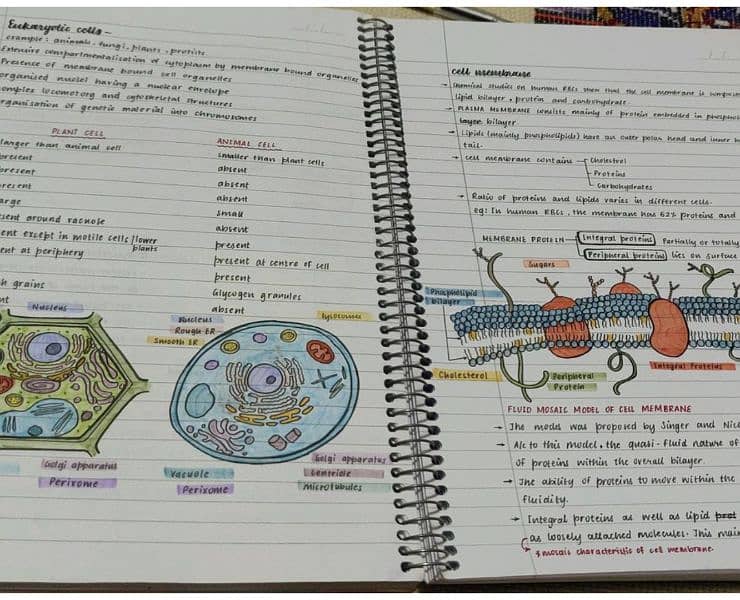 Eukaryotic cells -
example: animals, fungi, plants, protists
Extensive compartmentalisation of cytoplasm by membrane bound organelles
Presence of membrane bound cell organelles
organised nuclei having a nuclear envelope
complex locomotory and cytoskeletal structures
organisation of genetic material into chromosomes
PLANT CELL ANIMAL CELL
larger than animal cell smaller than plant cells
present absent
present absent
present absent
large small
present around vacuole absent
except in motile cells / lower plants present
at periphery present at centre of cell
present
grains Glycogen granules
absent
Nucleus
Golgi apparatus
Perixome
Nucleus
Rough ER
Smooth ER
Lysosome
Vacuole
Perixome
Golgi apparatus
Centriole
Microtubules
cell membrane
→ chemical studies on human RBCs show that the cell membrane is
lipid bilayer, protein and carbohydrate.
→ PLASMA MEMBRANE consists mainly of protein embedded in
layer bilayer
→ Lipids (mainly phospholipids) have an outer polar head and inner
tail.
→ cell membrane contains Cholestrol
Proteins
Carbohydrates
→ Ratio of proteins and lipids varies in different cells.
eg: In human RBCs, the membrane has 52% proteins and
MEMBRANE PROTEIN Integral proteins Partially or totally
Peripheral proteins lies on surface
Sugars
Phospholipid
bilayer
Cholesterol
Peripheral
Protein
Integral Proteins
FLUID MOSAIC MODEL OF CELL MEMBRANE
→ The model was proposed by Singer and
→ A/c to this model, the quasi-fluid nature of
of proteins within the overall bilayer.
→ The ability of proteins to move within the
fluidity.
→ Integral proteins as well as lipid prot
as loosely attached molecules. This
mosaic characteristic of cell membrane.